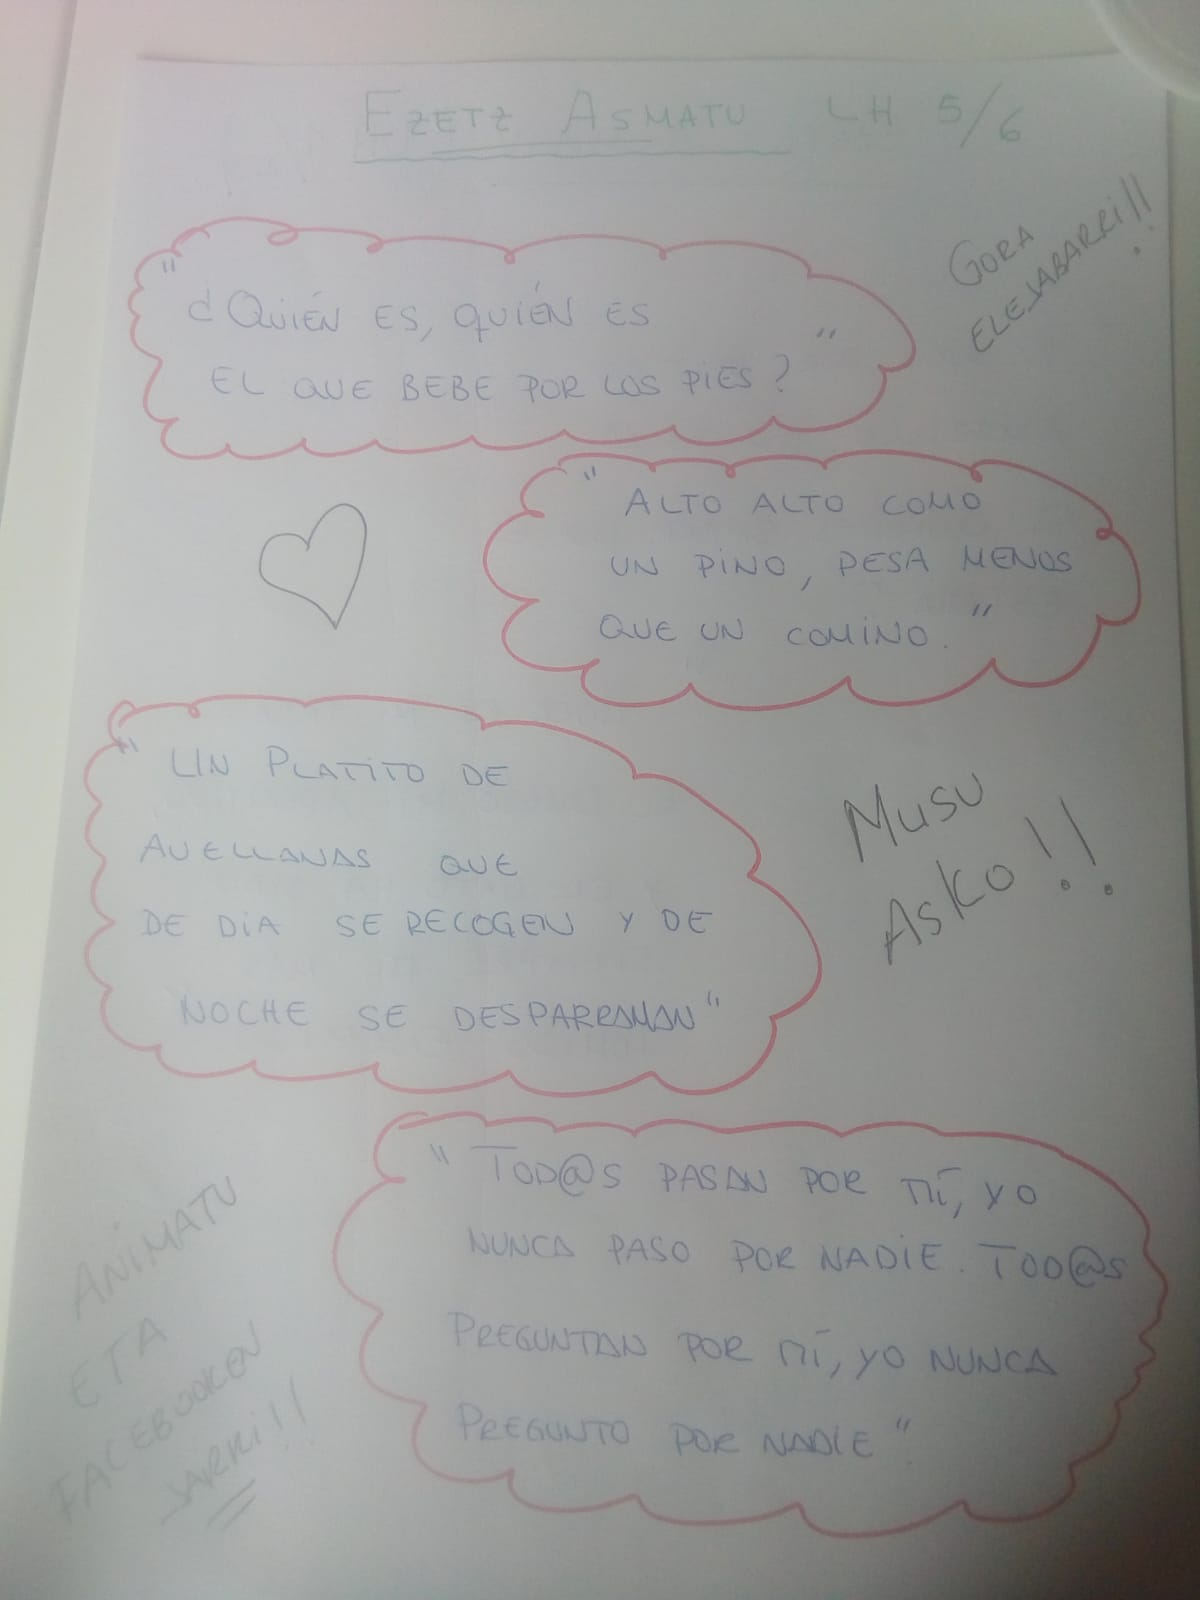 EZETZ ASMATU LH 5/6
GORA
ELEJABARRI!!
"¿QUIÉN ES, QUIÉN ES
EL QUE BEBE POR LOS PIES?"
"ALTO ALTO COMO
UN PINO, PESA MENOS
QUE UN COMINO."
"UN PLATITO DE
AVELLANAS QUE
DE DÍA SE RECOGEN Y DE
NOCHE SE DESPARRAMAN"
MUSU
ASKO!!
"TOD@S PASAN POR MÍ, YO
NUNCA PASO POR NADIE. TOD@S
PREGUNTAN POR MÍ, YO NUNCA
PREGUNTO POR NADIE"
ANIMATU
ETA
FACEBOOKEN
JARRI!!